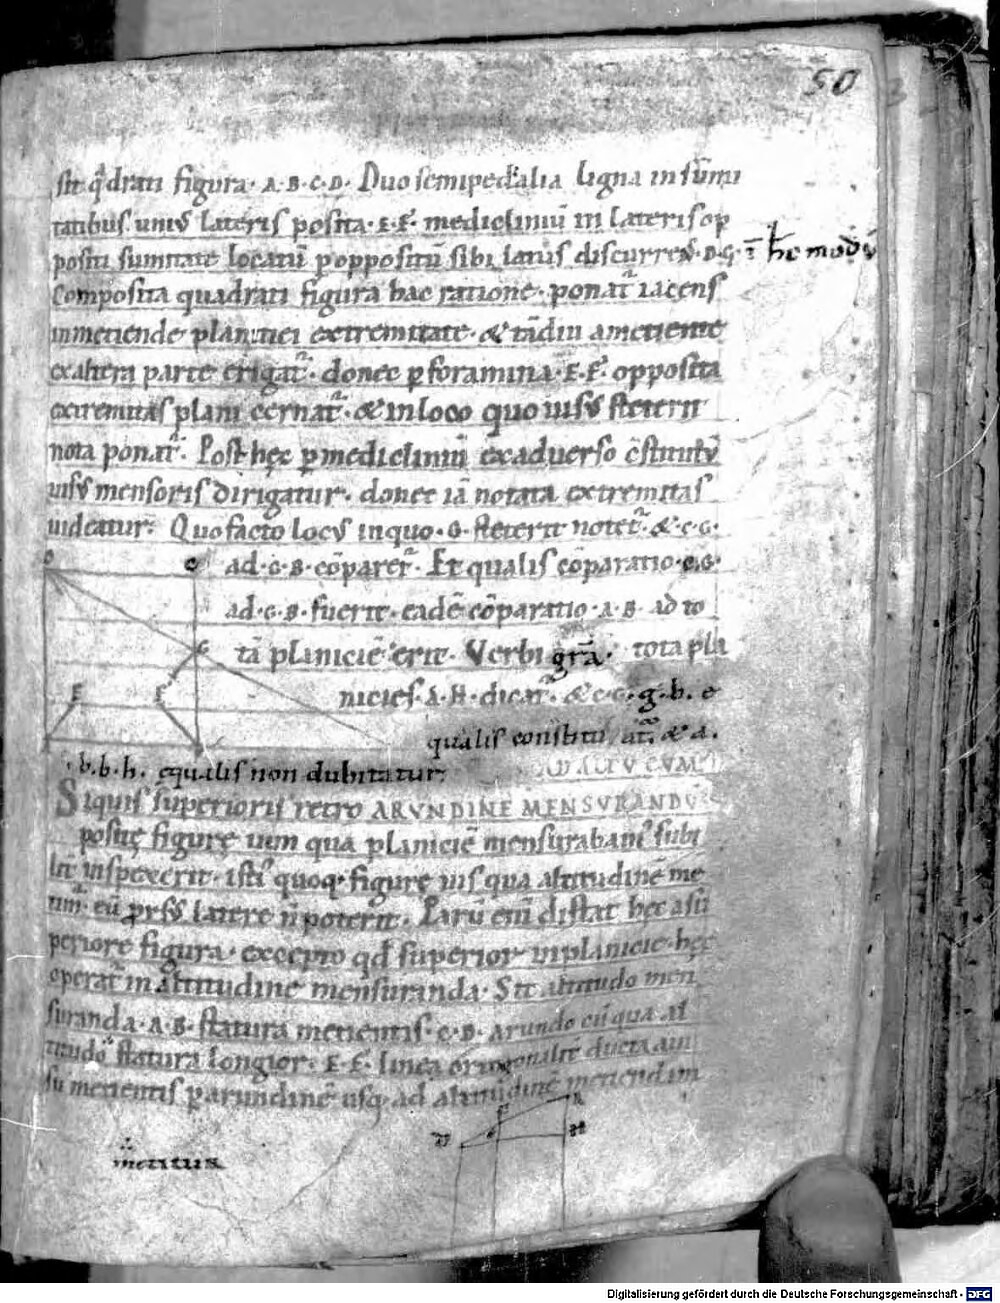 50
sit q̄drati figura · A · B · C · D · Duo semipedalia ligna in sūmi
tatibus uniꝰ lateris posita · E · F · medicliniū in lateris op
positi sumitate locatū ꝑ oppositū sibi latus discurrens · D · G · ī hc̄ modū
Composita quadrati figura hac ratione · ponatᷣ iacens
in metiende planitiei extremitate · & tādiu a metiente
ex altera parte erigatᷣ · donec ꝑ foramina · E · F · opposita
extremitas plani cernatᷣ · & in loco quo uisꝰ steterit
nota ponatᷣ · Post hęc ꝑ mediclíniū ex aduerso c̄stitutū
uisꝰ mensoris dirigatur · donec iā notata extremitas
uideatur · Quo facto locꝰ in quo · G · steterit notetᷣ · & · C · G ·
ad · G · B · cōparetᷣ · Et qualis cōparatio · C · G ·
ad · G · B · fuerit · eadē cōparatio · A · B · ad to
tā planiciē erit · Verbi grā · tota pla
nicies · A · H · dicatᷣ · & c · g · b · e
qualis constitu atᷣ · & a ·
b · b · h · equalis non dubitatur
AD ALTV CVM
Siquis superioris retro ARVNDINE MENSVRANDV
positę figurę uim qua planiciē mensurabam subti
lit̄ inspexerit · isti quoq; figurę uis qua altitudinē me
tim̄ · eū prorsꝰ latere n̄ poterit · Parū eni distat hęc a su
periore figura · excepto qd superior in planicie hęc
operatᷣ in altitudine mensuranda · Sit altitudo men
suranda · A · B · statura metientis · C · D · arundo eū qua al
titudo statura longior · E · F · linea ortogonalit̄ ducta a ui
su metientis ꝑ arundinē usq; ad altitudinē metiendam
D C G E F
F A D E H
metitus
Digitalisierung gefördert durch die Deutsche Forschungsgemeinschaft - DFG